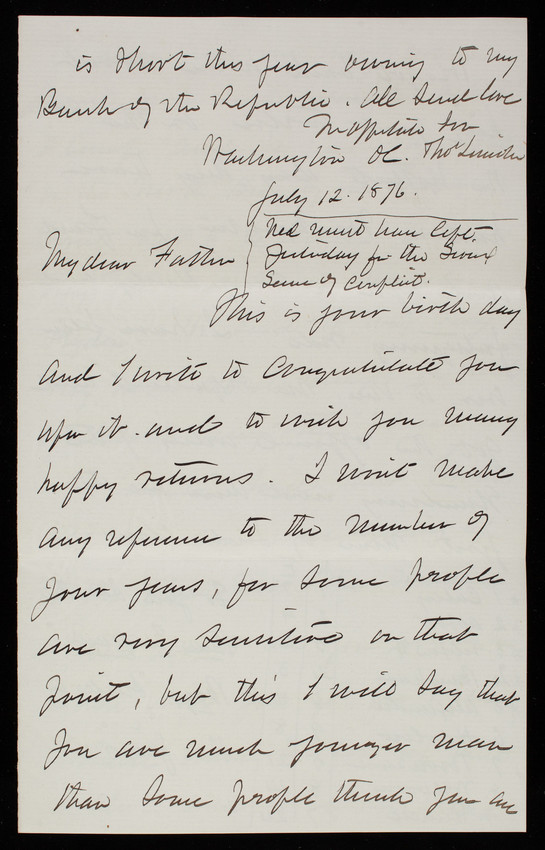 is short this year owing to my
Bank of the Republic. All send love
Affte Son
Washington DC. Thos Lincoln
July 12. 1876.
Ned must have left
yesterday for the
Scene of Conflict.
My dear Father
This is your birth day
and I write to Congratulate you
upon it. and to wish you many
happy returns. I wont make
any reference to the number of
your years, for some people
are very sensitive on that
point, but this I will say that
you are much younger man
than some people think you are